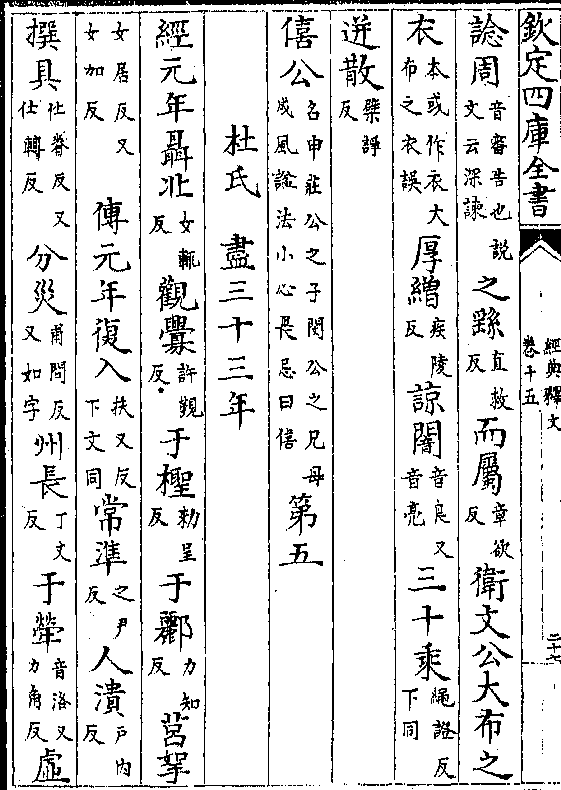 欽定四庫全書
經典釋文
卷十五
二十七
諗周音審告也説文云深諫之繇直救反而屬章欲反衛文公大布之
衣本或作衣大布之衣誤厚繒疾陵反諒闇音良又音亮三十乘繩證反下同
迸散檗諍反
僖公名申莊公之子閔公之兄母成風謚法小心畏忌曰僖第五
杜氏 盡三十三年
經元年聶北女輒反觀釁許觀反于檉勑呈反于酈力知反莒挐
女居反又女加反傳元年復入扶又反下文同常準之尹反人潰戶內反
撰具仕眷反又仕轉反分災甫問反又如字州長丁丈反于犖音洛又力角反虛